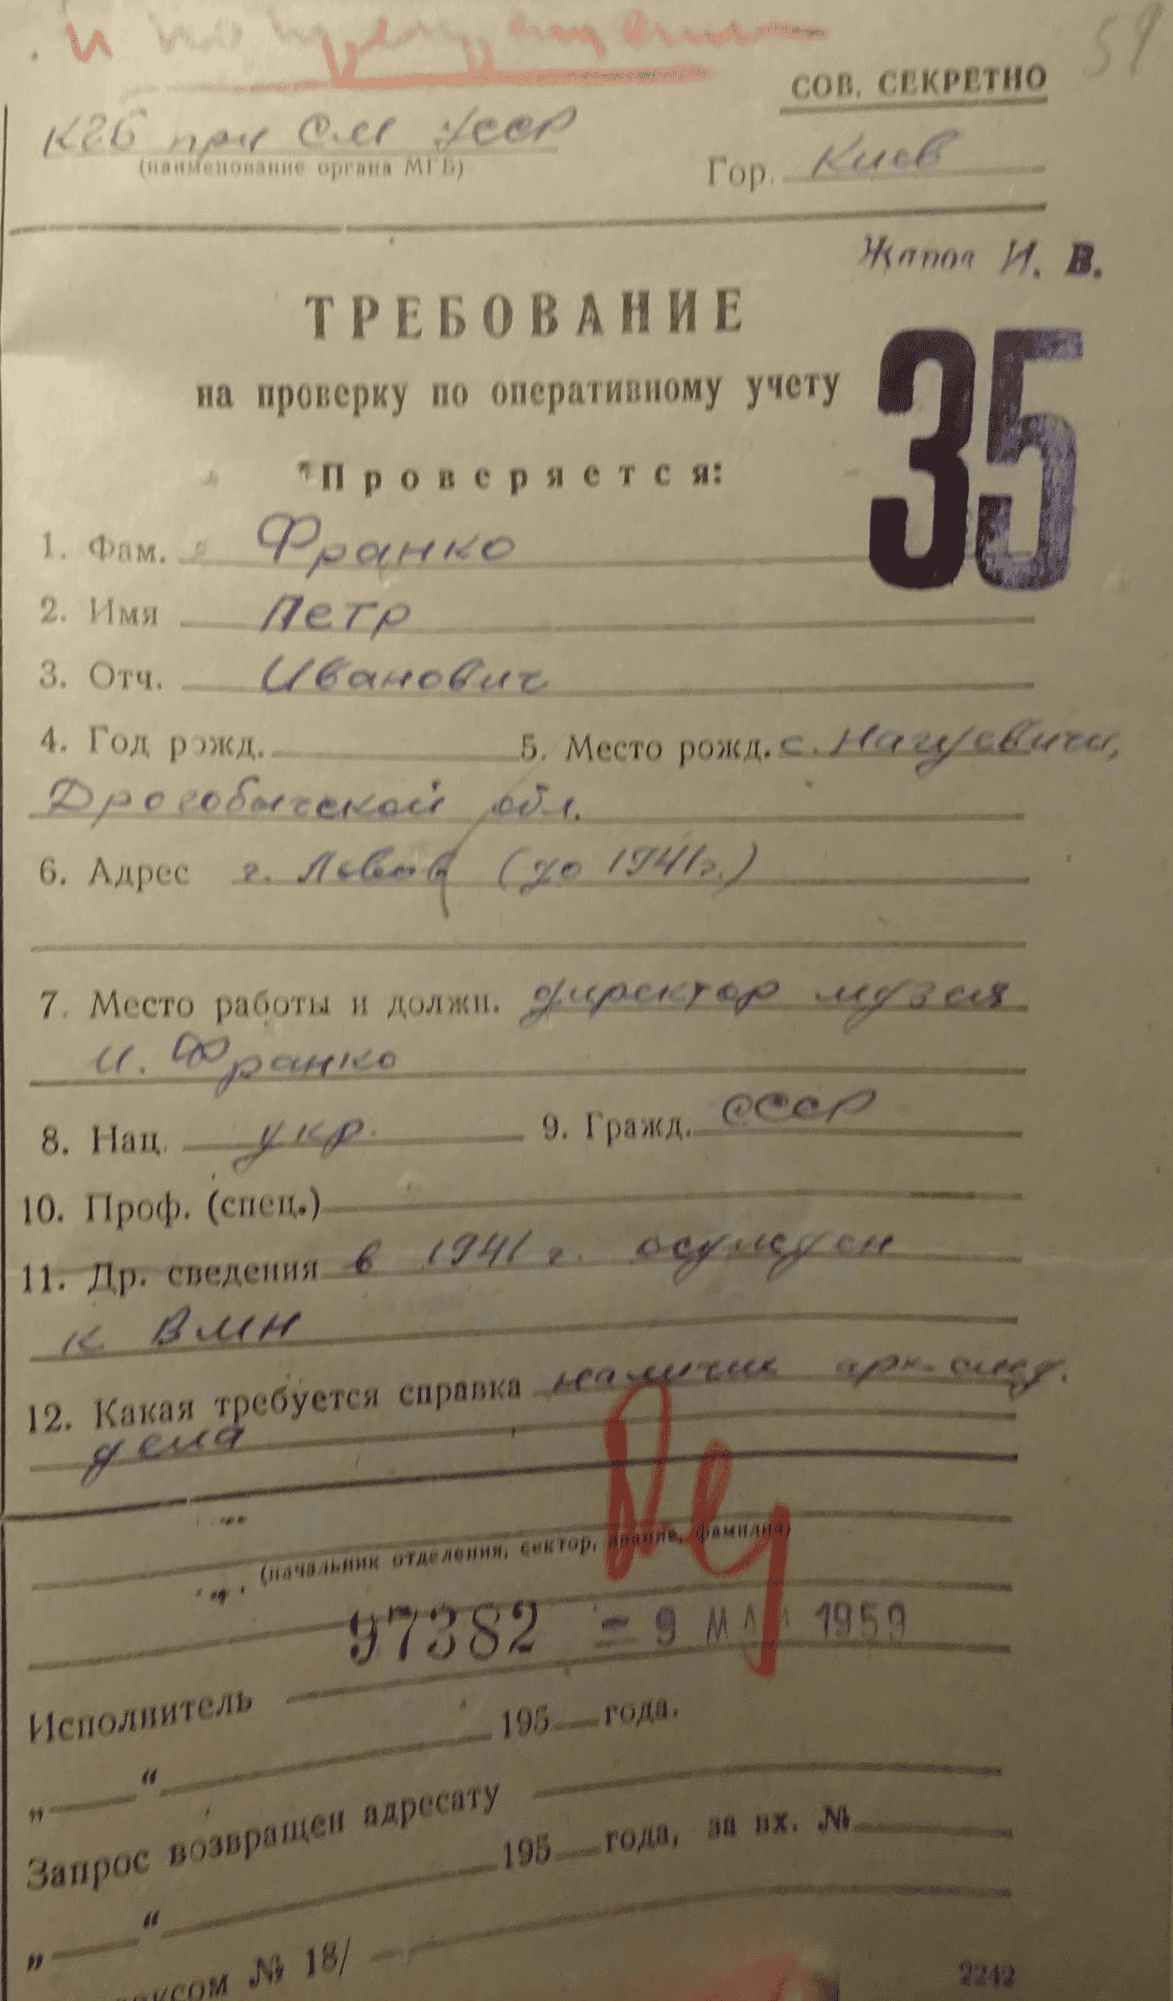 59
СОВ. СЕКРЕТНО
КГБ при СМ УССР
(наименование органа МГБ)
Гор. Киев
И. В.
ТРЕБОВАНИЕ
на проверку по оперативному учету
35
Проверяется:
1. Фам. Франко
2. Имя Петр
3. Отч. Иванович
4. Год рожд. 5. Место рожд. с. Нагуевичи,
Дрогобычской обл.
6. Адрес г. Львов (до 1941г.)
7. Место работы и должн. директор музея
И. Франко
8. Нац. укр. 9. Гражд. СССР
10. Проф. (спец.)
11. Др. сведения в 1941 г. осужден
к ВМН
12. Какая требуется справка наличие арх.
дела
(начальник отделения, сектор, звание, фамилия)
97382 = 9 МАЯ 1959
Исполнитель
„ “ 195 года.
Запрос возвращен адресату
„ “ 195 года, за вх. №
№ 18/
2242